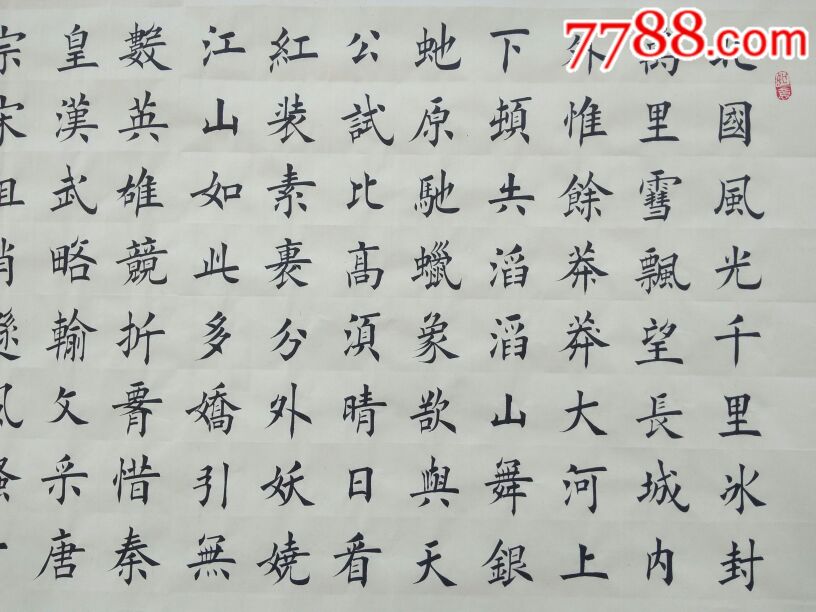 7788.com
北國風光千里冰封
萬里雪飄望長城内
外惟餘莽莽大河上
下頓失滔滔山舞銀
虵原馳蠟象欲與天
公試比高須晴日看
紅装素裹分外妖嬈
江山如此多嬌引無
數英雄競折惜秦
皇漢武略輸文采唐
宗宋祖稍遜風騷